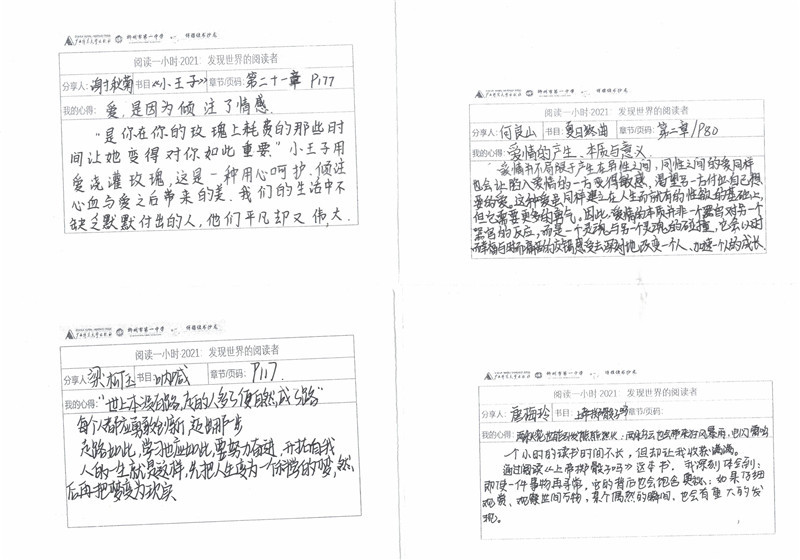 柳州市第一中学 师语读书沙龙
阅读一小时·2021：发现世界的阅读者
分享人：谢秋菊 书目：《小王子》 章节/页码：第二十一章 P177
我的心得：爱，是因为倾注了情感.
“是你在你的玫瑰上耗费的那些时
间让她变得对你如此重要.”小王子用
爱浇灌玫瑰，这是一种用心呵护、倾注
心血与爱之后带来的美. 我们的生活中不
缺乏默默付出的人，他们平凡却又伟大.
柳州市第一中学
阅读一小时·2021：发现世界的阅读者
分享人：何良山 书目：夏日终曲 章节/页码：第二章/P80
我的心得：爱情的产生、本质与意义
爱情并不局限于产生在异性之间，同性之间的爱同样
也会让陷入爱情的一方变得敏感，渴望另一方付出自己想
要的爱。这种爱是同样建立在人生而就有的性欲的基础上，
但它需要更多的勇气。因此，爱情的本质并非一个器官对另一个
器官的反应，而是一个灵魂与另一个灵魂的碰撞，它会以
去深刻地改变一个人、加速一个人的成长
柳州市第一中学
阅读一小时·2021：发现世界的阅读者
分享人：梁 书目：呐喊 章节/页码：P117.
我的心得：“世上本没有路，走的人多了便自然成了路”
每个人都应勇敢创新，走出第一步
走路如此，学习也应如此，要努力奋进，开拓自我
人的一生就是这样，先把人生变为一个的梦，然
后再把梦变为现实
柳州市第一中学
阅读一小时·2021：发现世界的阅读者
分享人：唐梅玲 书目：上帝掷骰子吗 章节/页码：
我的心得：
一个小时的读书时间不长，但却让我收获满满。
通过阅读《上帝掷骰子吗》这本书，我深刻体会到：
即使一件事物再寻常，它的背后也会饱含奥秘；如果仔细
观察、观察世间万物，某个偶然的瞬间，也会有重大的发
现。